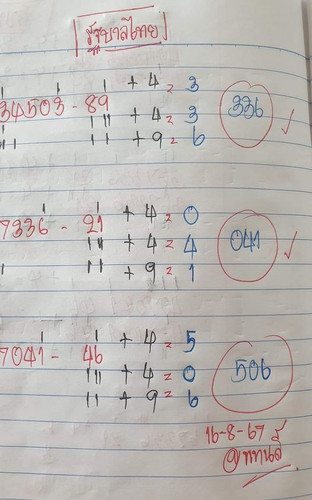 รัฐบาลไทย
+ 4 = 3
34503 - 89 + 4 = 3 336
+ 9 = 6
7336 - 21 + 4 = 0
+ 4 = 4 041
+ 9 = 1
7041 - 46 + 4 = 5
+ 4 = 0 506
+ 9 = 6
16-8-67